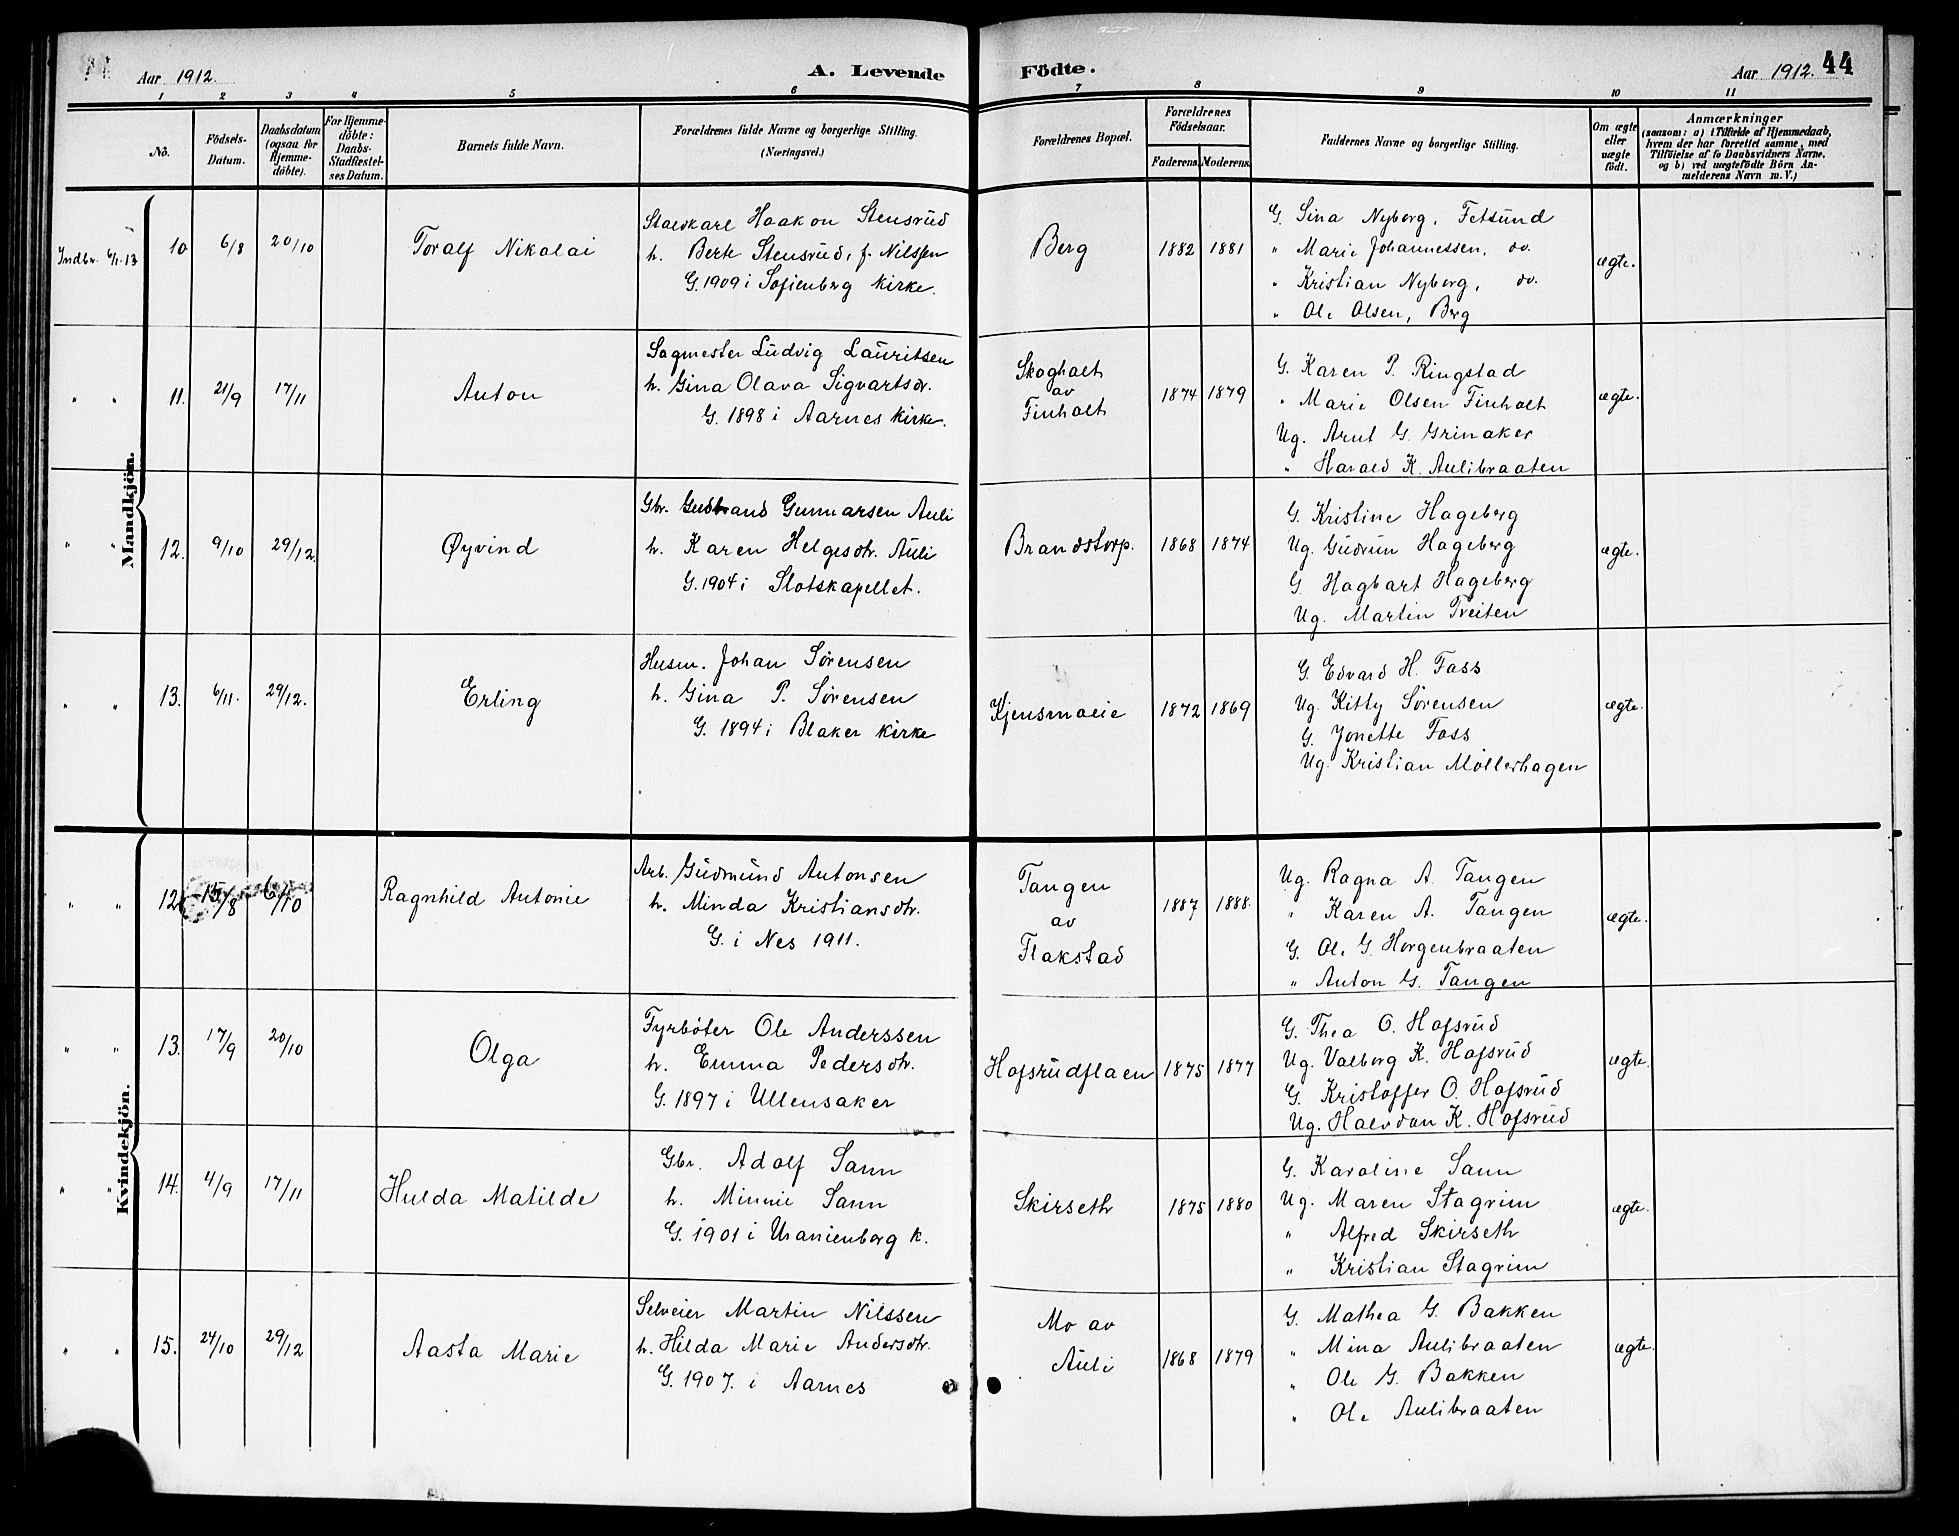 Aar 1912.
A. Levende
Födte.
Aar 1912. 44
1 2 3 4 5 6 7 8 9 10 11
No.
Födsels-
Datum.
Daabsdatum
(ogsaa for
Hjemme-
döbte).
For Hjemme-
döbte:
Daabs-
Stadfæstel-
ses Datum.
Barnets fulde Navn.
Forældrenes fulde Navne og borgerlige Stilling.
(Næringsvei.)
Forældrenes Bopæl.
Forældrenes
Födselsaar.
Faderens. Moderens.
Faddernes Navne og borgerlige Stilling.
Om ægte
eller
uægte
födt.
Anmærkninger
(saasom: a) i Tilfælde af Hjemmedaab,
hvem der har forrettet samme, med
Tilföielse af to Daabsvidners Navne,
og b) ved uægtefödte Börn An-
melderens Navn m. V.)
Mandkjön.
Indbr. 6/1.13 10. 6/8 20/10 Toralf Nikolai
Staldkarl Haakon Stensrud
h. Berte Stensrud, f. Nilssen
G. 1909 i Sofienberg kirke.
Berg 1882 1881
G. Sina Nyberg, Fetsund
" Marie Johannessen, do.
" Kristian Nyberg, do.
" Ole Olsen, Berg
ægte.
" " 11. 21/9 17/11 Anton
Sagmester Ludvig Lauritsen
h. Gina Olava Sigvartsdr.
G. 1898 i Aarnes kirke.
Skogholt
av
Finholt
1874 1879
G. Karen P. Ringstad
" Marie Olsen Finholt
Ug. Arnt G. Grinaker
" Harald K. Aulibraaten
ægte.
" " 12. 9/10 29/12. Øyvind
Gbr. Gudbrand Gunnarsen Auli
h. Karen Helgesdtr. Auli
G. 1904 i Slotskapellet.
Brandstorp. 1868 1874
G. Kristine Hageberg
Ug. Gudrun Hageberg
G. Hagbart Hageberg
Ug. Martin Tveiten
ægte.
" " 13. 6/11. 29/12. Erling
Husm. Johan Sørensen
h. Gina P. Sørensen
G. 1894 i Blaker kirke
Kjensmoeie 1872 1869
G. Edvard H. Foss
Ug. Kitty Sørensen
G. Jonette Foss
Ug. Kristian Møllerhagen
ægte.
Kvindekjön.
" " 12. 15/8 6/10 Ragnhild Antonie
Arb. Gudmund Antonsen
h. Minda Kristiansdtr.
G. i Nes 1911.
Tangen
av
Flakstad
1887 1888.
Ug. Ragna A. Tangen
" Karen A. Tangen
G. Ole G. Horgenbraaten
" Anton G. Tangen
ægte.
" " 13. 17/9 20/10 Olga
Fyrbøter Ole Anderssen
h. Emma Pedersdtr.
G. 1897 i Ullensaker
Hofsrudflaen 1875 1877
G. Thea O. Hofsrud
Ug. Valborg K. Hofsrud
G. Kristoffer O. Hofsrud
Ug. Halvdan K. Hofsrud
ægte.
" " 14. 4/9 17/11 Hulda Matilde
Gbr. Adolf Sann
h. Minnie Sann
G. 1901 i Uranienborg k.
Skirseth 1875 1880
G. Karoline Sann
Ug. Maren Stagrim
" Alfred Skirseth
" Kristian Stagrim
ægte.
" " 15. 24/10 29/12 Aasta Marie
Selveier Martin Nilssen
h. Hilda Marie Andersdtr.
G. 1907. i Aarnes
Mo av
Auli
1868 1879
G. Mathea G. Bakken
" Mina Aulibraaten
" Ole G. Bakken
" Ole Aulibraaten
ægte.